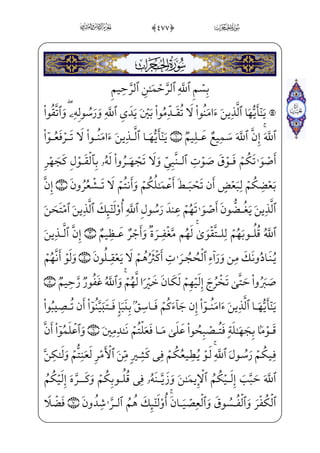 سُورَةُ الحُجُرَاتِ ﴿٤٧٧﴾
سُورَةُ الحُجُرَاتِ
بِسْمِ ٱللَّهِ ٱلرَّحْمَـٰنِ ٱلرَّحِيمِ
۞ يَـٰٓأَيُّهَا ٱلَّذِينَ ءَامَنُوا۟ لَا تُقَدِّمُوا۟ بَيْنَ يَدَىِ ٱللَّهِ وَرَسُولِهِۦ ۖ وَٱتَّقُوا۟
ٱللَّهَ ۚ إِنَّ ٱللَّهَ سَمِيعٌ عَلِيمٌ ۝١ يَـٰٓأَيُّهَا ٱلَّذِينَ ءَامَنُوا۟ لَا تَرْفَعُوٓا۟
أَصْوَٰتَكُمْ فَوْقَ صَوْتِ ٱلنَّبِىِّ وَلَا تَجْهَرُوا۟ لَهُۥ بِٱلْقَوْلِ كَجَهْرِ
بَعْضِكُمْ لِبَعْضٍ أَن تَحْبَطَ أَعْمَـٰلُكُمْ وَأَنتُمْ لَا تَشْعُرُونَ ۝٢ إِنَّ
ٱلَّذِينَ يَغُضُّونَ أَصْوَٰتَهُمْ عِندَ رَسُولِ ٱللَّهِ أُو۟لَـٰٓئِكَ ٱلَّذِينَ ٱمْتَحَنَ
ٱللَّهُ قُلُوبَهُمْ لِلتَّقْوَىٰ ۚ لَهُم مَّغْفِرَةٌ وَأَجْرٌ عَظِيمٌ ۝٣ إِنَّ ٱلَّذِينَ
يُنَادُونَكَ مِن وَرَآءِ ٱلْحُجُرَٰتِ أَكْثَرُهُمْ لَا يَعْقِلُونَ ۝٤ وَلَوْ أَنَّهُمْ
صَبَرُوا۟ حَتَّىٰ تَخْرُجَ إِلَيْهِمْ لَكَانَ خَيْرًا لَّهُمْ ۚ وَٱللَّهُ غَفُورٌ رَّحِيمٌ ۝٥
يَـٰٓأَيُّهَا ٱلَّذِينَ ءَامَنُوٓا۟ إِن جَآءَكُمْ فَاسِقٌۢ بِنَبَإٍ فَتَبَيَّنُوٓا۟ أَن تُصِيبُوا۟
قَوْمًۢا بِجَهَـٰلَةٍ فَتُصْبِحُوا۟ عَلَىٰ مَا فَعَلْتُمْ نَـٰدِمِينَ ۝٦ وَٱعْلَمُوٓا۟ أَنَّ
فِيكُمْ رَسُولَ ٱللَّهِ ۚ لَوْ يُطِيعُكُمْ فِى كَثِيرٍ مِّنَ ٱلْأَمْرِ لَعَنِتُّمْ وَلَـٰكِنَّ
ٱللَّهَ حَبَّبَ إِلَيْكُمُ ٱلْإِيمَـٰنَ وَزَيَّنَهُۥ فِى قُلُوبِكُمْ وَكَرَّهَ إِلَيْكُمُ
ٱلْكُفْرَ وَٱلْفُسُوقَ وَٱلْعِصْيَانَ ۚ أُو۟لَـٰٓئِكَ هُمُ ٱلرَّٰشِدُونَ ۝٧ فَضْلًا